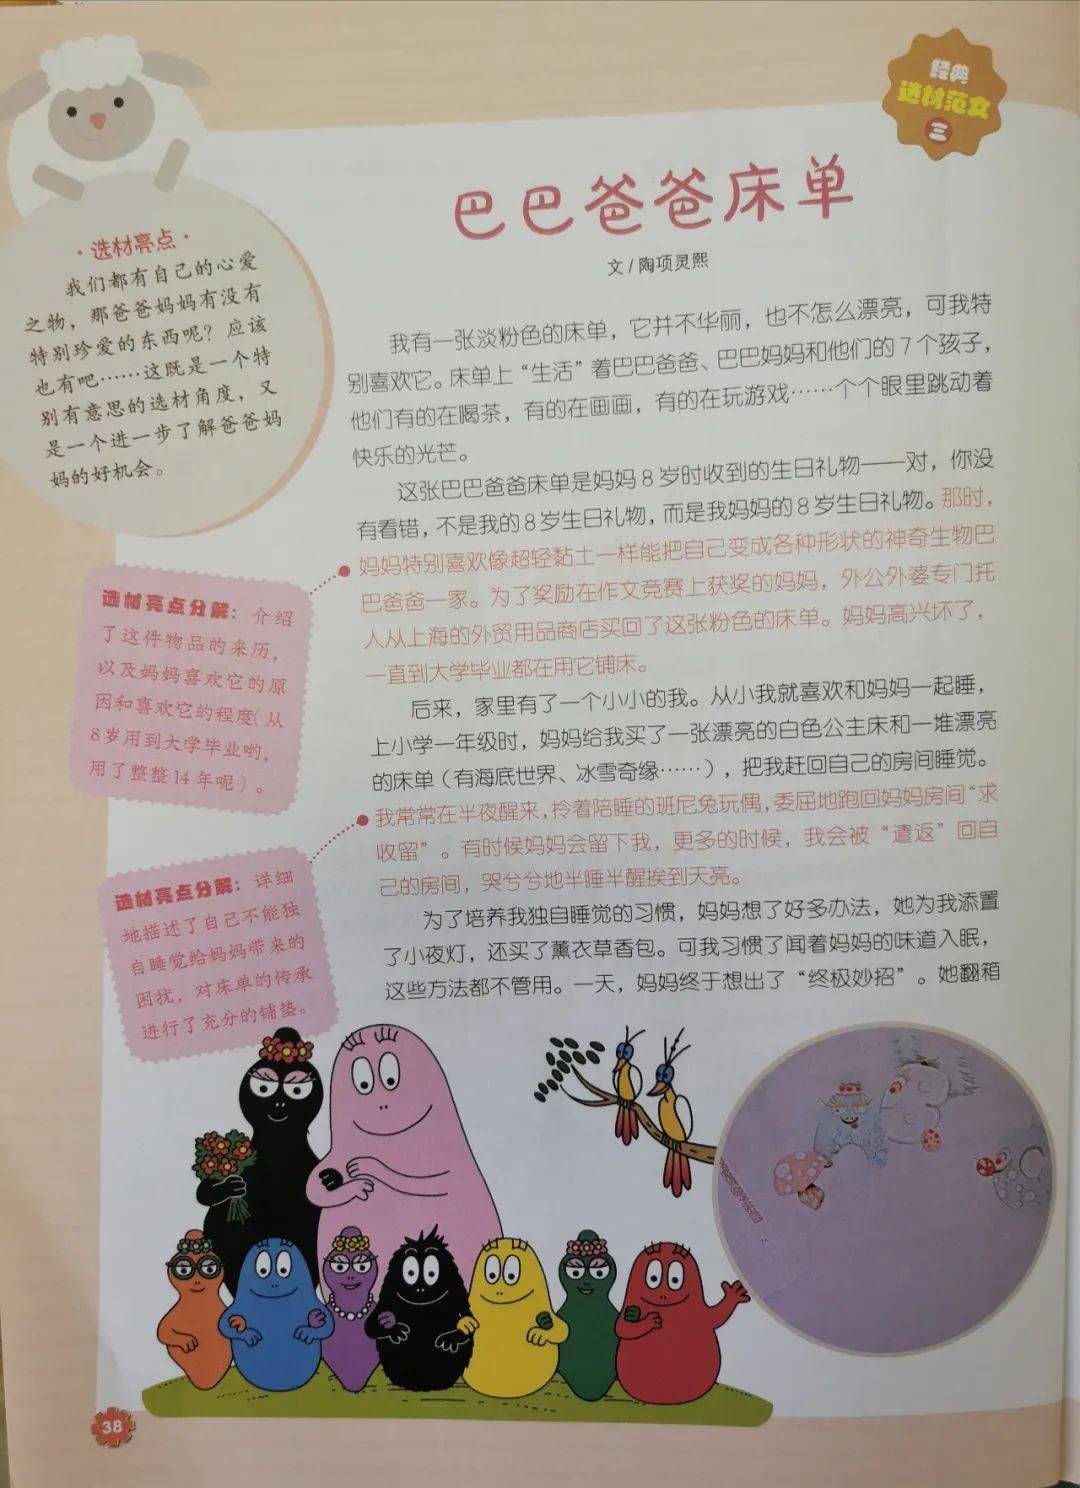 经典
选材范文
三
巴巴爸爸床单
文/陶项灵熙
·选材亮点·
我们都有自己的心爱
之物，那爸爸妈妈有没有
特别珍爱的东西呢？应该
也有吧……这既是一个特
别有意思的选材角度，又
是一个进一步了解爸爸妈
妈的好机会。
我有一张淡粉色的床单，它并不华丽，也不怎么漂亮，可我特
别喜欢它。床单上“生活”着巴巴爸爸、巴巴妈妈和他们的7个孩子，
他们有的在喝茶，有的在画画，有的在玩游戏……个个眼里跳动着
快乐的光芒。
这张巴巴爸爸床单是妈妈8岁时收到的生日礼物——对，你没
有看错，不是我的8岁生日礼物，而是我妈妈的8岁生日礼物。那时，
妈妈特别喜欢像超轻黏土一样能把自己变成各种形状的神奇生物巴
巴爸爸一家。为了奖励在作文竞赛上获奖的妈妈，外公外婆专门托
人从上海的外贸用品商店买回了这张粉色的床单。妈妈高兴坏了，
一直到大学毕业都在用它铺床。
选材亮点分解：介绍
了这件物品的来历，
以及妈妈喜欢它的原
因和喜欢它的程度（从
8岁用到大学毕业哟，
用了整整14年呢）。
后来，家里有了一个小小的我。从小我就喜欢和妈妈一起睡，
上小学一年级时，妈妈给我买了一张漂亮的白色公主床和一堆漂亮
的床单（有海底世界、冰雪奇缘……），把我赶回自己的房间睡觉。
我常常在半夜醒来，拎着陪睡的班尼兔玩偶，委屈地跑回妈妈房间“求
收留”。有时候妈妈会留下我，更多的时候，我会被“遣返”回自
己的房间，哭兮兮地半睡半醒挨到天亮。
选材亮点分解：详细
地描述了自己不能独
自睡觉给妈妈带来的
困扰，对床单的传承
进行了充分的铺垫。
为了培养我独自睡觉的习惯，妈妈想了好多办法，她为我添置
了小夜灯，还买了薰衣草香包。可我习惯了闻着妈妈的味道入眠，
这些方法都不管用。一天，妈妈终于想出了“终极妙招”。她翻箱
38